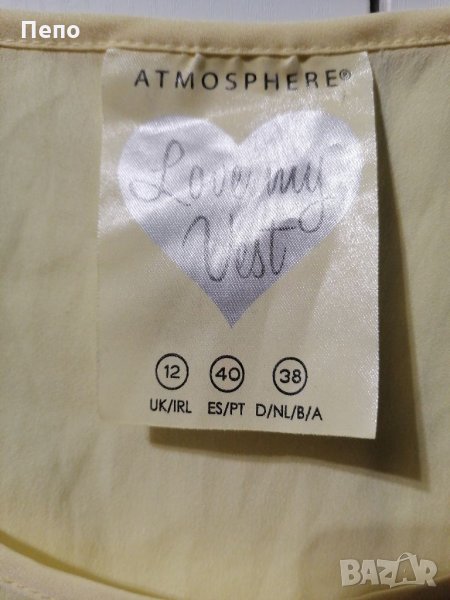 Пепо
ATMOSPHERE®
Love my
Vest
12 40 38
UK/IRL ES/PT D/NL/B/A
BAZAR